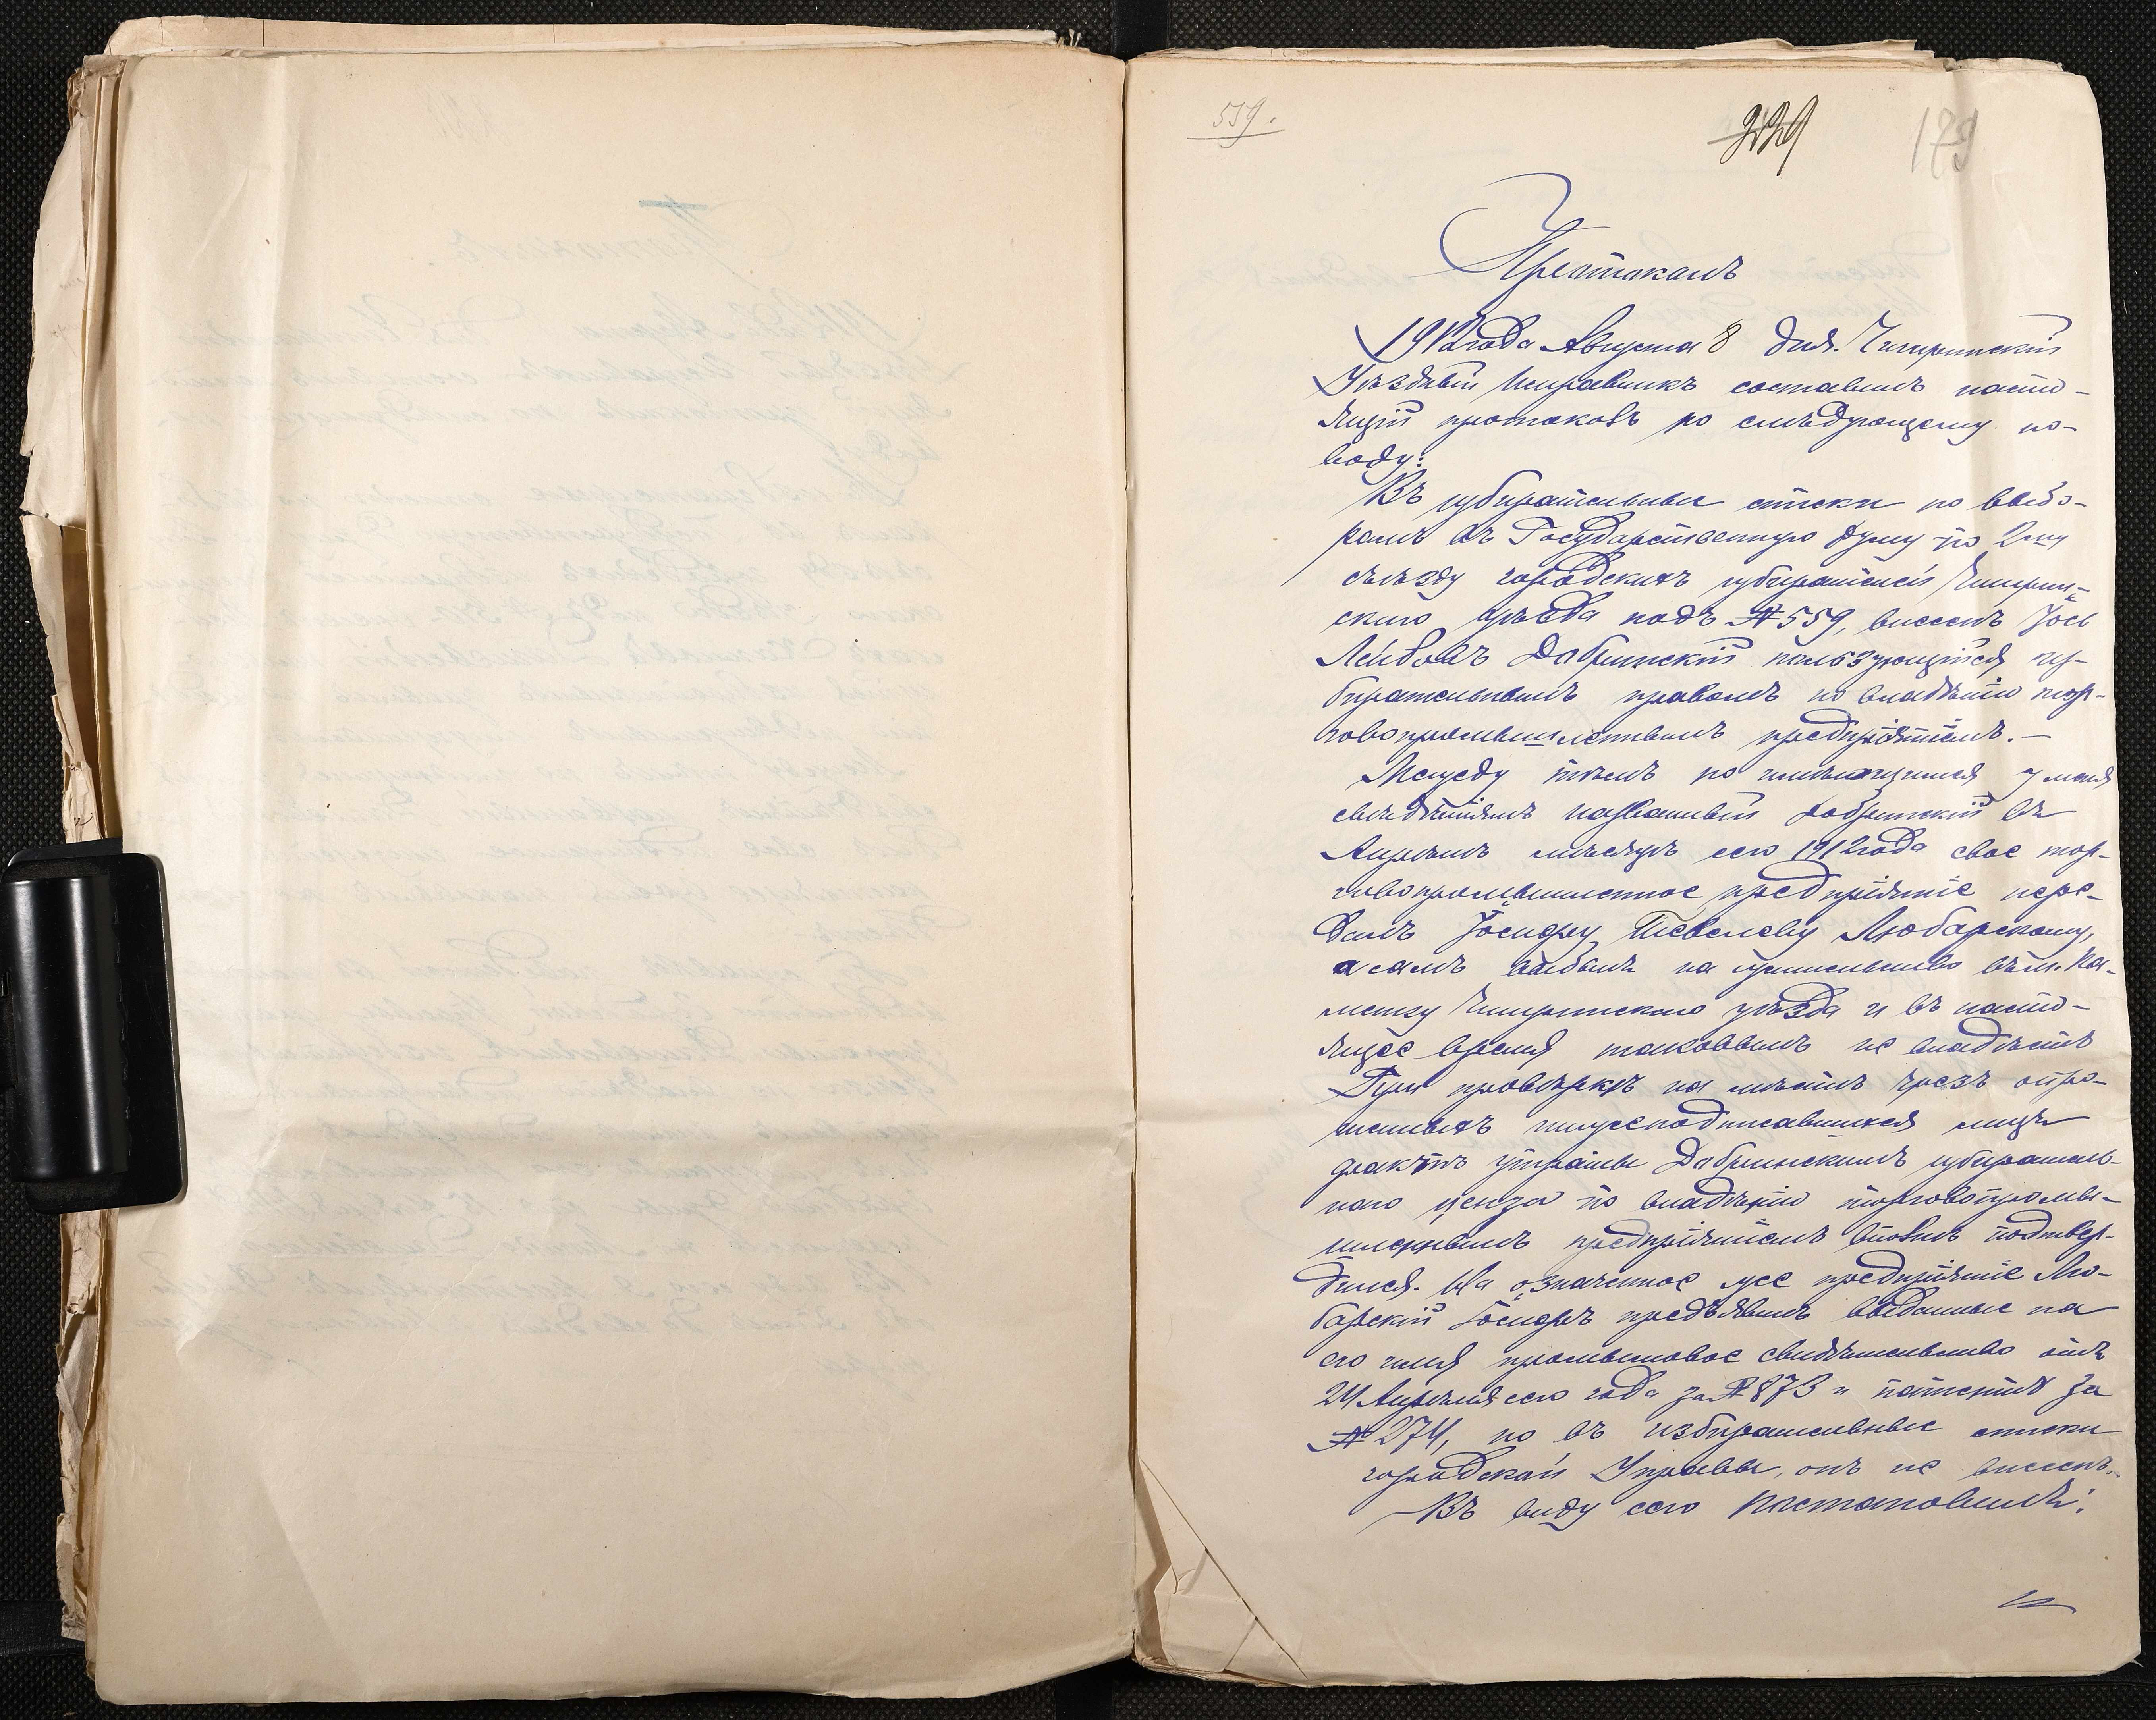 559.
329
179
Протоколъ
1912 года Августа 8 дня. Чигиринскій
Уѣздный Исправникъ составилъ насто-
ящій протоколъ по слѣдующему по-
воду:
Въ избирательные списки по выбо-
рамъ въ Государственную думу по 2му
съѣзду городскихъ избирателей Чигирин-
скаго уѣзда подъ № 559, внесенъ Іось
Лейбовъ Добринскій пользующійся из-
бирательнымъ правомъ по владѣнію тор-
говопромышленнымъ предпріятіемъ.—
Между тѣмъ по имѣющимся у меня
свѣдѣніямъ названный Добринскій въ
Апрѣлѣ мѣсяцѣ сего 1912 года свое тор-
говопромышленное предпріятіе пере-
далъ Іосифу Тевелеву Любарскому,
а самъ выбылъ на жительство въ м. Ка-
менку Чигиринскаго уѣзда и въ насто-
ящее время таковымъ не владѣетъ
При провѣркѣ на мѣстѣ чрезъ опро-
шенныхъ нижеподписавшихся лицъ
фактъ утраты Добринскимъ избиратель-
наго ценза по владѣнію торговопромы-
шленнымъ предпріятіемъ вполнѣ подтвер-
дился. На означенное же предпріятіе Лю-
барскій Іосифъ предъявилъ выданные на
его имя промысловое свидѣтельство отъ
24 Апрѣля сего года за № 873 и патентъ за
№ 274, но въ избирательные списки
городской Управы, онъ не внесенъ.
Въ виду сего постановилъ: